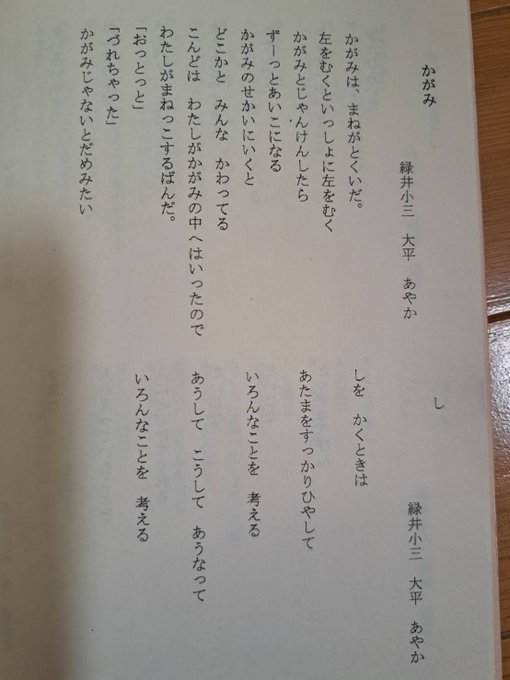 かがみ
緑井小三 大平 あやか
かがみは、まねがとくいだ。
左をむくといっしょに左をむく
かがみとじゃんけんしたら
ずーっとあいこになる
かがみのせかいにいくと
どこかと みんな かわってる
こんどは わたしがかがみの中へはいったので
わたしがまねっこするばんだ。
「おっとっと」
「づれちゃった」
かがみじゃないとだめみたい
し
緑井小三 大平 あやか
しを かくときは
あたまをすっかりひやして
いろんなことを 考える
あうして こうして あうなって
いろんなことを 考える